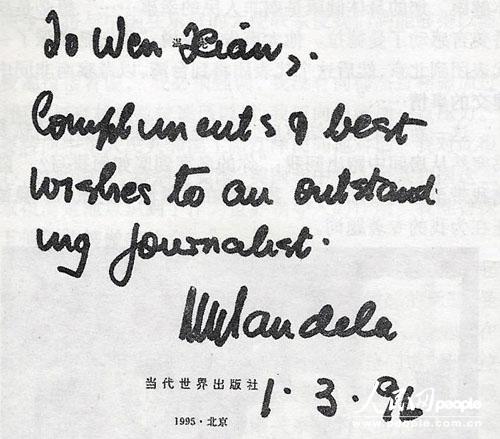 To Wen Xian,
Compliments & best
wishes to an outstand
ing journalist.
NMandela
当代世界出版社
1995·北京
1·3·96
人民网 people
www.people.com.cn